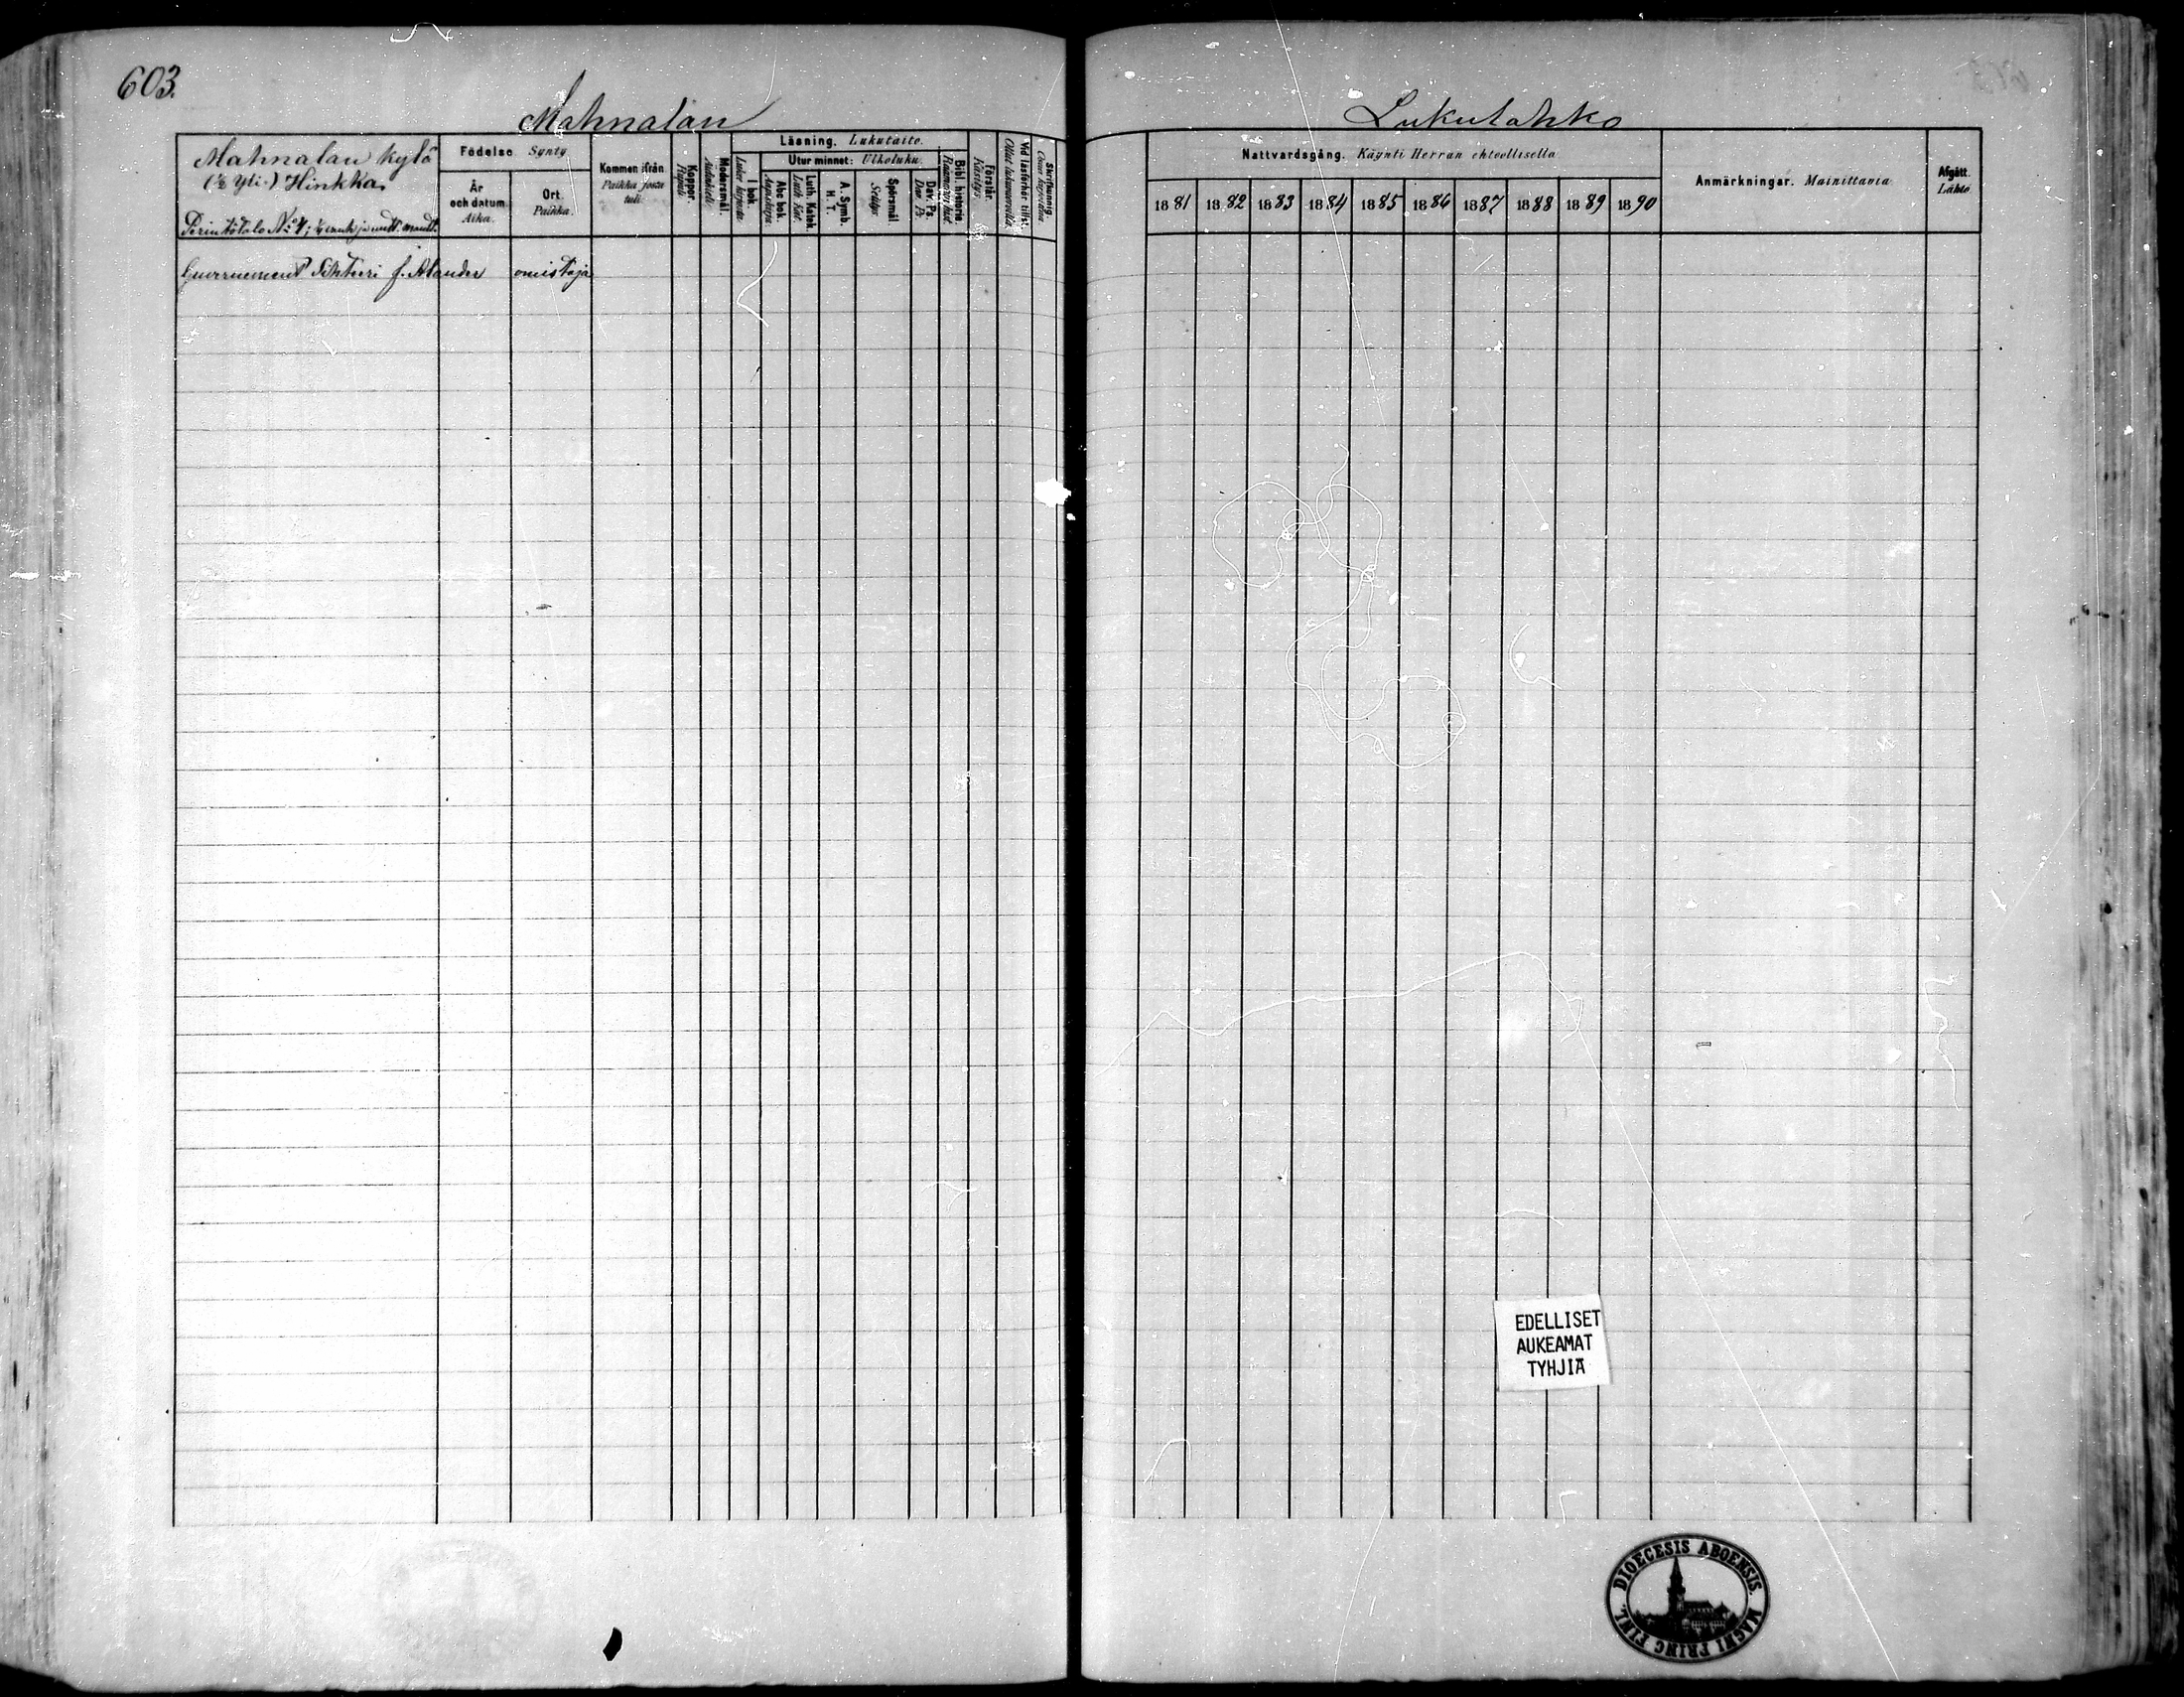 603.
Mahnalan
Lukulahko
Mahnalan kylä
(½ Yli-) Hinkka
Perintötalo No 4;
Födelse. Synty.
År
och datum.
Aika.
Ort.
Paikka.
Kommen ifrån.
Paikka josta
tuli.
Koppor.
Rupuli
Modersmål.
Äidinkieli
Läsning. Lukutaito.
I bok.
Lukee kirjasta
Utur minnet: Ulkoluku.
Abc bok.
Aapiskirja.
Luth. Katek.
Luth. Kat.
A. Symb.
H. T.
Spörsmål.
Selitys
Dav. Ps
Dav. Ps
Bibl. historia.
Raamatun hist.
Förstår.
Käsitys.
Vid läsförhör tillst.
Ollut lukuvuorolla.
Skriftkunnig.
Osaa kirjoittaa
Nattvardsgång. Käynti Herran ehtoollisella
1881 1882 1883 1884 1885 1886 1887 1888 1889 1890
Anmärkningar. Mainittavia
Afgått.
Lähtö
Guvernement Sihteeri f. Alander omistaja
EDELLISET
AUKEAMAT
TYHJIÄ
DIOECESIS ABOENSIS. MAGNI PRINC FINL.